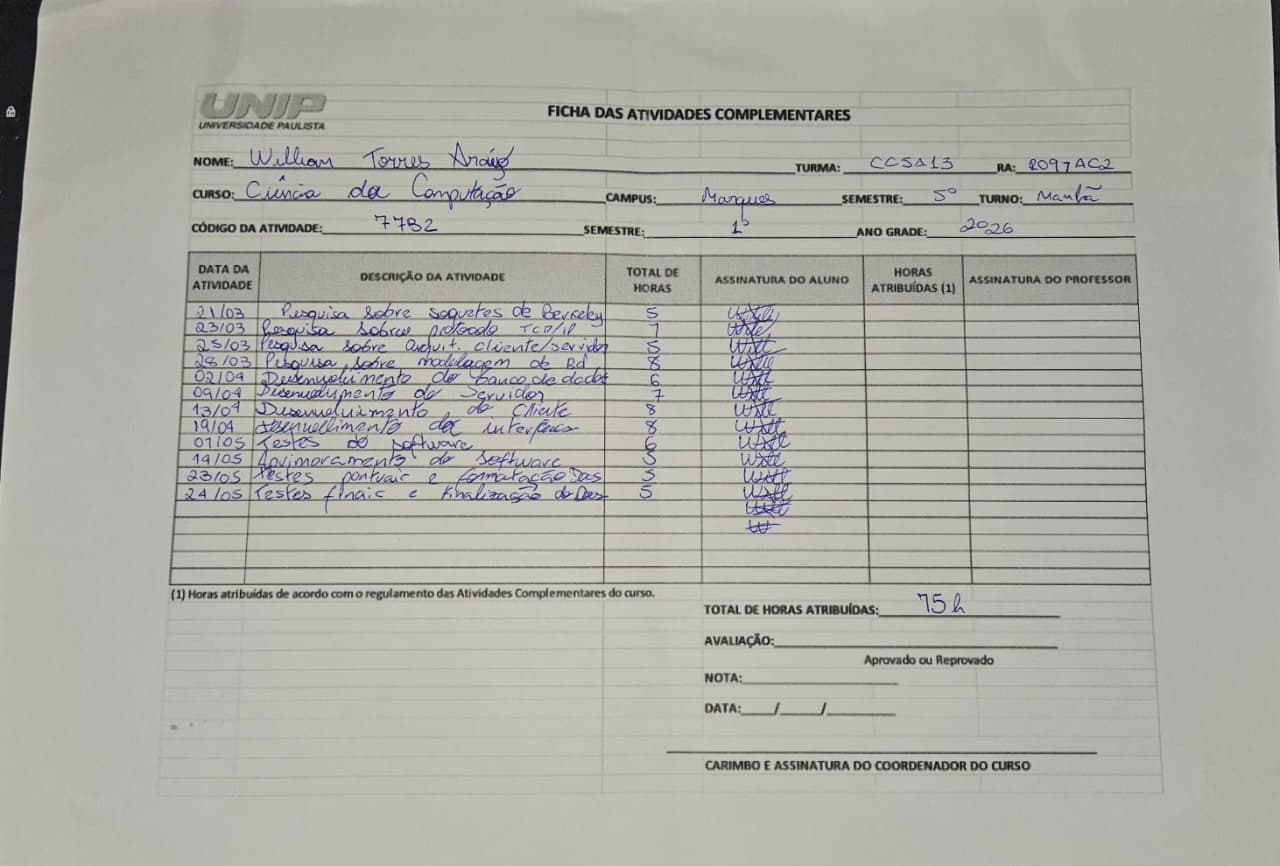 UNIP
UNIVERSIDADE PAULISTA
FICHA DAS ATIVIDADES COMPLEMENTARES
NOME: Willian Torres Araújo TURMA: CC5A13 RA: R097AC2
CURSO: Ciência da Computação CAMPUS: Marques SEMESTRE: 5º TURNO: Manhã
CÓDIGO DA ATIVIDADE: 77B2 SEMESTRE: 1º ANO GRADE: 2026
DATA DA ATIVIDADE DESCRIÇÃO DA ATIVIDADE TOTAL DE HORAS ASSINATURA DO ALUNO HORAS ATRIBUÍDAS (1) ASSINATURA DO PROFESSOR
21/03 Pesquisa sobre soquetes de Berkeley 5
23/03 Pesquisa sobre protocolo TCP/IP 7
25/03 Pesquisa sobre arquit. cliente/servidor 5
28/03 Pesquisa sobre modelagem de Bd 8
02/04 Desenvolvimento do banco de dados 6
09/04 Desenvolvimento do Servidor 7
13/04 Desenvolvimento do Cliente 8
19/04 desenvollimento da interface 8
01/05 Testes do software 6
19/05 Aprimoramento do Software 5
23/05 Testes pontuais e formatação Das 5
24/05 Testes finais e Finalização do Das 5
(1) Horas atribuídas de acordo com o regulamento das Atividades Complementares do curso.
TOTAL DE HORAS ATRIBUÍDAS: 75h
AVALIAÇÃO:
Aprovado ou Reprovado
NOTA:
DATA: / /
CARIMBO E ASSINATURA DO COORDENADOR DO CURSO